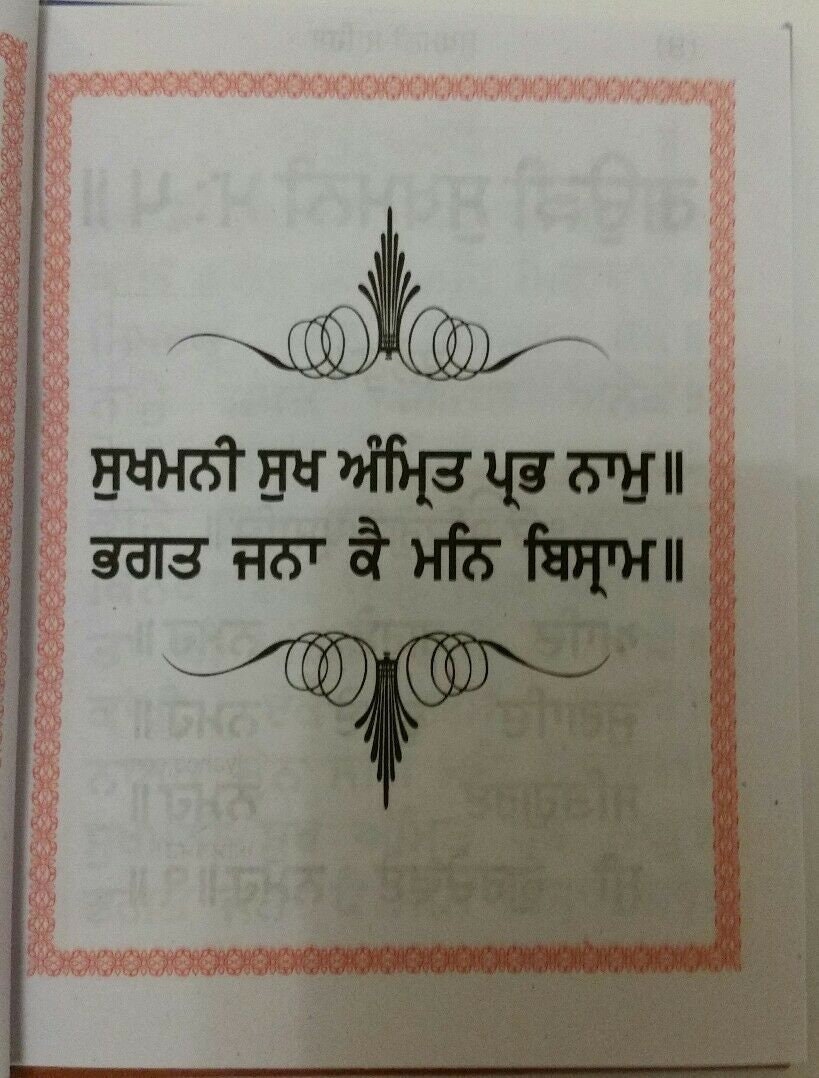 ਸੁਖਮਨੀ ਸੁਖ ਅੰਮ੍ਰਿਤ ਪ੍ਰਭ ਨਾਮੁ॥
ਭਗਤ ਜਨਾ ਕੈ ਮਨਿ ਬਿਸ੍ਰਾਮ॥